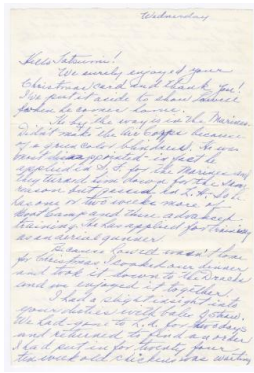 Wednesday
Hello Tatsumi!
We surely enjoyed your
Christmas card and thank you!
I've put it aside to show
when he comes home.
by the way is in the Marines.
Didn't make the Air Corps because
of a green color blindness. He was
disappointed - in fact he
applied in for the Marines and
they turned him down for the same
reason but passed in L.A. So he
has one or two weeks more of
Boot Camp and then advanced
training. He has applied for training
as an aerial gunner.
Because wasn't home
for Christmas I cooked our dinner
and took it down to the
and we enjoyed it together.
I had a slight insight into
your duties with
We had gone to L.A. for two days
and returned to find an order
I had put in for twenty four
week old chickens was waiting